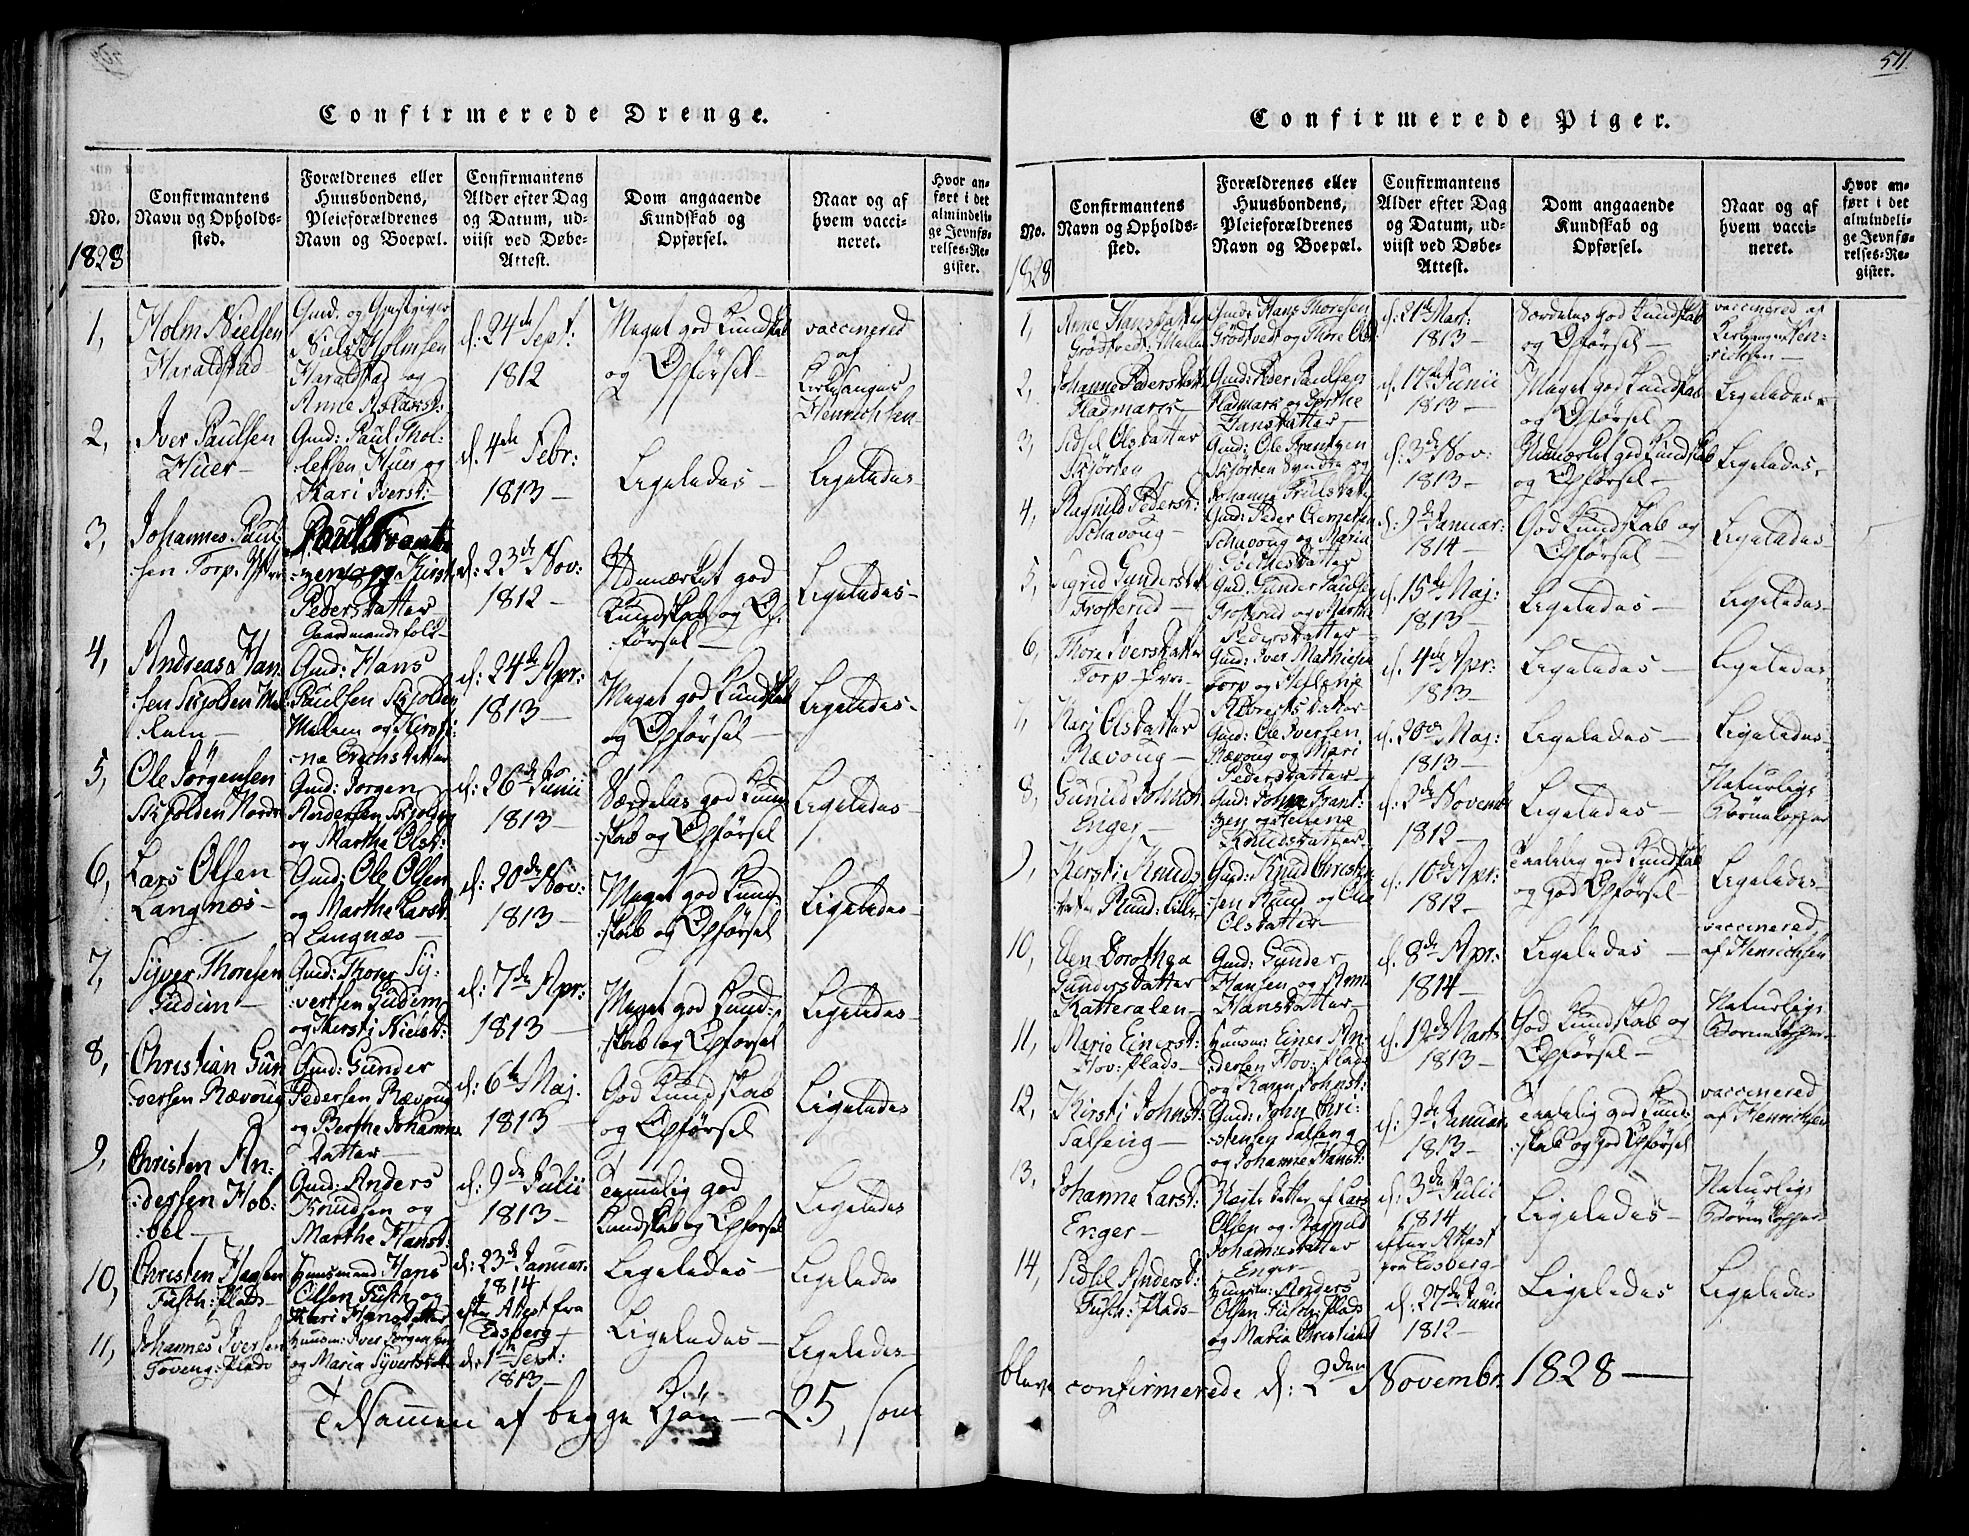 511.
Confirmerede Drenge.
No.
1828
Confirmantens
Navn og Opholds-
sted.
Forældrenes eller
Huusbondens,
Pleieforældrenes
Navn og Boepæl.
Confirmantens
Alder efter Dag
og Datum, ud-
viist ved Døbe-
Attest.
Dom angaaende
Kundskab og
Opførsel.
Naar og af
hvem vacci-
neret.
Hvor an-
ført i det
almindeli-
ge Jevnfø-
relses-Re-
gister.
1,
Holm Nielsen
Haraldstad
Gmd: og Gjestgiver
Niels Holmsen
Haraldstad og
Anne
d: 24de Sept:
1812
Meget god Kundskab
og Opførsel
vaccinered
af
Kirkesanger
Henrichsen
2,
Iver Paulsen
Huer
Gmd: Paul Thol-
:lefsen Huer og
Kari Iverst:
d. 4de Febr:
1813
Ligeledes
Ligeledes
3,
Johannes Paul:
:sen Torp
Paul Frant-
:zen og Kirst:
Pedersdatter
Gaardmandsfolk
d: 23de Nov:
1812
Udmærket god
Kundskab og Op-
:førsel
Ligeledes
4,
Andreas Han-
:sen Skjolden Mel-
:lem
Gmd: Hans
Paulsen Skjolden
Mellem og Kirsti-
:ne Erichsdatter
d: 24de Apr:
1813
Meget god Kundskab
og Opførsel
Ligeledes
5,
Ole Jørgensen
Skjolden Nordre
Gmd: Jørgen
Andersen Skjolden
og Marthe Olsd:
d: 26de Junii
1813
Særdeles god Kund-
:skab og Opførsel
Ligeledes
6,
Lars Olsen
Langnæs
Gmd: Ole Olsen
og Marthe Larsd:
Langnæs
d: 20de Nov:
1813
Meget god Kund-
:skab og Opførsel
Ligeledes
7,
Syver Thoresen
Gudim
Gmd: Thorer Sy-
:versen Gudim
og Kersti Nielsd:
d: 7de Apr:
1813
Meget god Kund-
:skab og Opførsel
Ligeledes
8,
Christian Gun-
dersen Rævoug
Gmd: Gunder
Pedersen Rævoug
og Berthe Johanne
datter
d: 6te Maj.
1813
God Kundskab
og Opførsel
Ligeledes
9,
Christen An-
:dersen Hob-
:bel
Gmd: Anders
Knudsen og
Marthe Hansd:
d: 9de Julii
1813
Temmelig god
Kundskab og Opførsel
Ligeledes
10,
Christen Hansen
Fusch: plads
Huusmand Hans
Olsen Fusch og
Kari Hansdatter
d: 23de Januar:
1814
efter Attest fra
Edsberg
Ligeledes
Ligeledes
11,
Johannes Iversen
Toveng: plads
Huusm: Iver Jørgensen
og Maria Syvertsd:
d: 1ste Sept:
1813
Ligeledes
Ligeledes
Tilsammen af begge Kjøn 25, som
Confirmerede Piger.
No.
1828
Confirmantens
Navn og Opholds-
sted.
Forældrenes eller
Huusbondens,
Pleieforældrenes
Navn og Boepæl.
Confirmantens
Alder efter Dag
og Datum, ud-
viist ved Døbe-
Attest.
Dom angaaende
Kundskab og
Opførsel.
Naar og af
hvem vacci-
neret.
Hvor an-
ført i det
almindeli-
ge Jevnfø-
relses-Re-
gister.
1,
Anne Hansdatter
Grødtvedt: Mellem
Gmd: Hans Thoresen
Grødtvedt og Thore Olsd:
d: 21de Mart:
1813
Særdeles god Kundskab
og Opførsel
vaccinered af
Kirkesanger Hen-
richsen
2,
Johanne Pedersdatter
Fladmark
Gmd: Peder Paulsen
Fladmark og Berthe
Hansdatter
d. 17de Junii
1813
Meget god Kundskab
og Opførsel
Ligeledes
3,
Sidsel Olsdatter
Skjørten
Gmd: Ole Frantzen
Skjørten Syndre og
Johanna
d: 3de Nov:
1813
Udmærket god Kundskab
og Opførsel
Ligeledes
4,
Ragnild Pedersd:
Schavoug
Gmd: Peder Clemetsen
Schavoug og Maria
d: 9de Januar:
1814
God Kundskab og
Opførsel
Ligeledes
5,
Sigrid Gundersdat
Frosterud
Gmd: Gunder Paulsen
Frosterud og Marthe
Pedersdatter
d: 15de Maj:
1813
Ligeledes
Ligeledes
6,
Thore Iversdatter
Torp
Gmd: Iver Mathiesen
Torp og Helene
Albrechtsdatter
d: 4de Apr:
1813
Ligeledes
Ligeledes
7,
Mari Olsdatter
Rævoug
Gmd: Ole Iversen
Rævoug og Mari
Pedersdatter
d: 20de Maj:
1813
Ligeledes
Ligeledes
8,
Gunild Johnsd:
Enger
Gmd: John Frant-
:zen og Helene
Knudsdatter
d: 2de Novemb:
1812
Ligeledes
Naturlige
Børnekopper
9,
Kersti Knuds-
datter Ruud: Lille
Gmd: Knud Christen-
:sen Ruud og
Olsdatter
d: 10de Apr:
1812
Taalelig god Kundskab
og god Opførsel
Ligeledes
10,
Elen Dorothea
Gundersdatter
Katteralen
Gmd: Gunder
Hansen og Anne
Hansdatter
d. 8de Apr:
1814
Ligeledes
vaccinered
af Henrichsen
11,
Marie Einersd:
Hov: plads
Huusm: Einer An-
:dersen Hov: plads
og Karen Johnsd:
d. 19de Marts
1813
God Kundskab og
Opførsel
Naturlige
Børnekopper
12,
Kirsti Johnsd:
Salfeng
Gmd: John Chri-
:stensen Salfeng
og Johanne Hansd:
d: 9de Januar.
1813
Taalelig god Kund-
:skab og god Opførsel
vaccinered
af Henrichsen
13,
Johanne Larsd:
Enger
datter af Lars
Olsen og Ragnild
Johannesdatter
Enger
d: 3de Julii
1814
efter Attest
fra Edsberg
Ligeledes
Naturlige
Børnekopper
14,
Sidsel Andersd:
Fusch: plads
Huusm: Anders
Olsen Fusch: plads
og Maria Christiansd
d: 27de Junii
1812
Ligeledes
Ligeledes
bleve confirmerede d: 2den Novembr: 1828